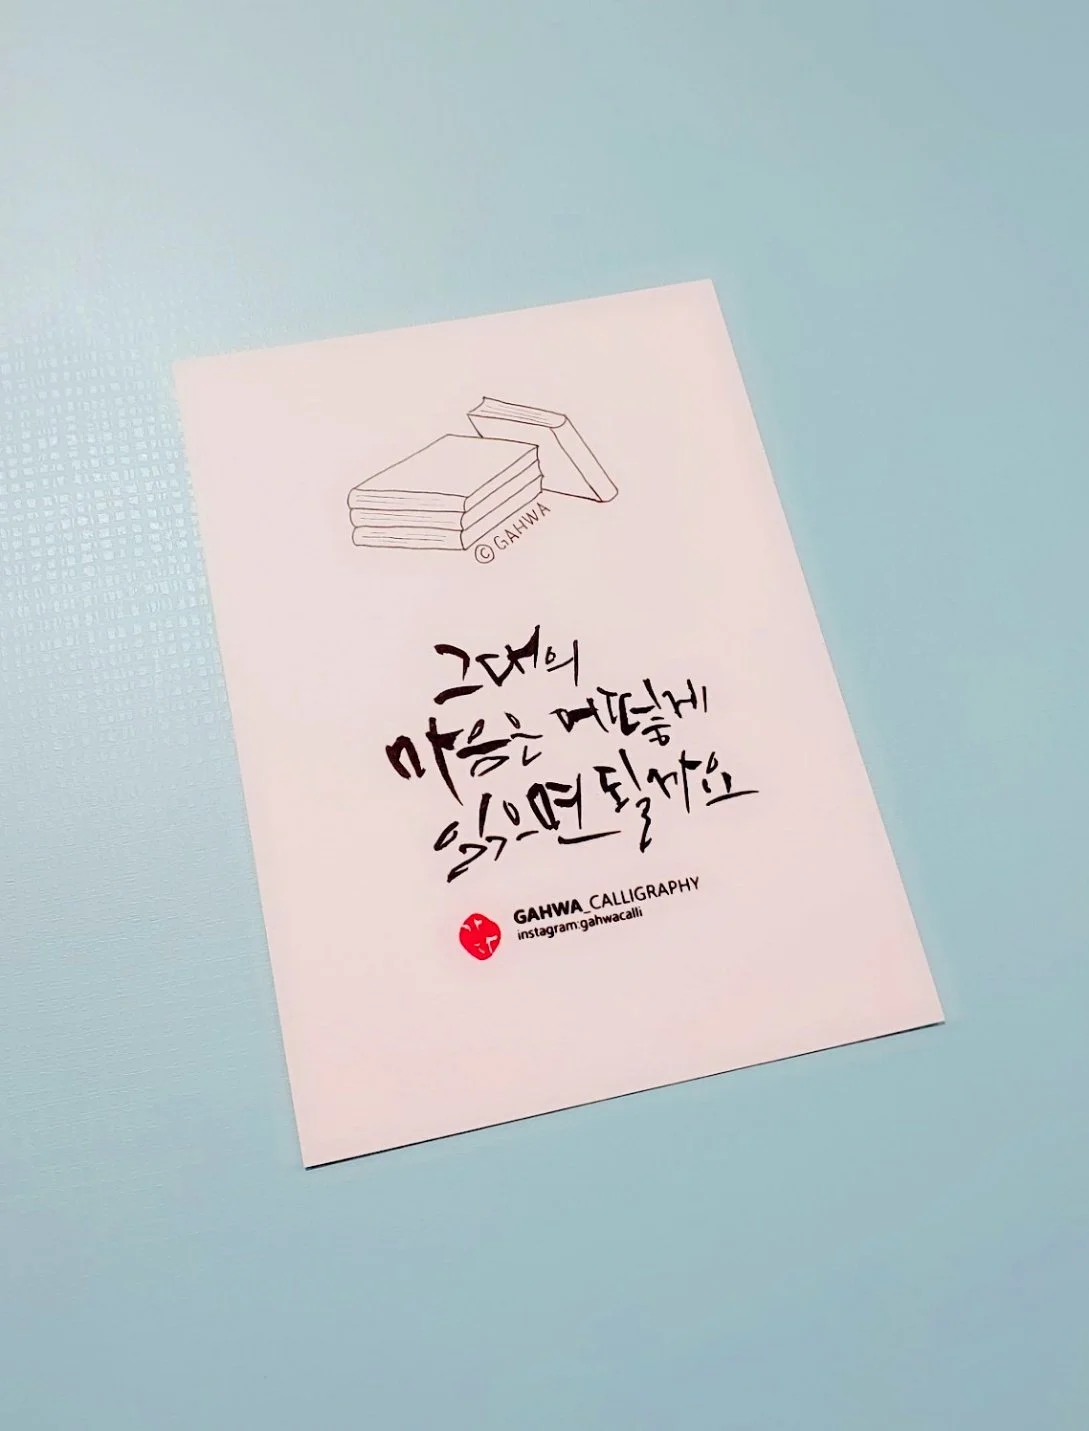 ©GAHWA
그대의
마음은 어떻게
읽으면 될까요
GAHWA_CALLIGRAPHY
instagram:gahwacalli